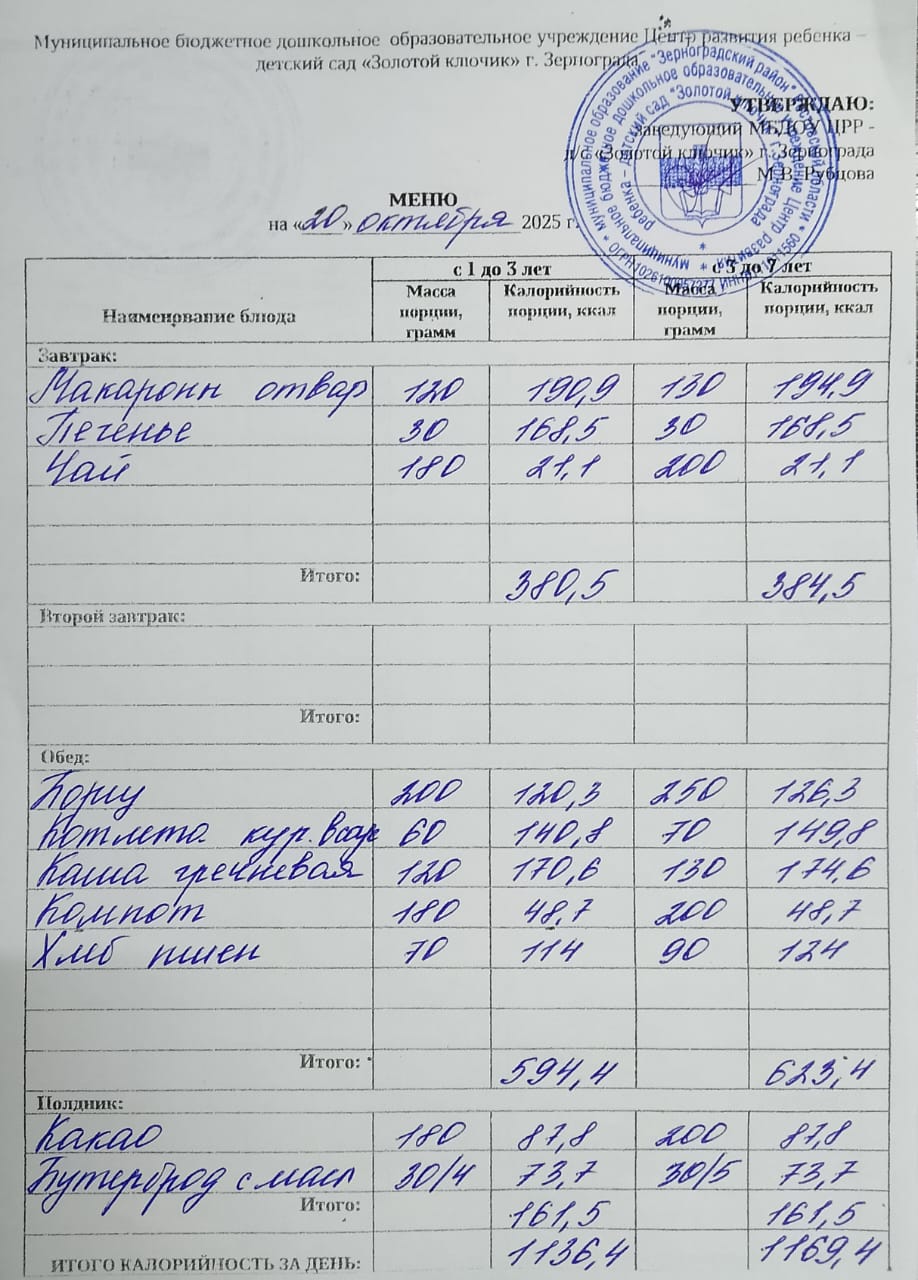 Муниципальное бюджетное дошкольное образовательное учреждение Центр развития ребенка –
детский сад «Золотой ключик» г. Зернограда
УТВЕРЖДАЮ:
заведующий МБДОУ ЦРР -
д/с «Золотой ключик» г. Зернограда
М.В. Рубцова
МЕНЮ
на «20» октября 2025 г.
с 1 до 3 лет с 3 до 7 лет
Наименование блюда Масса порции, грамм Калорийность порции, ккал Масса порции, грамм Калорийность порции, ккал
Завтрак:
Макарони отвар 120 190,9 130 194,9
Печенье 30 168,5 30 168,5
Чай 180 21,1 200 21,1
Итого: 380,5 384,5
Второй завтрак:
Итого:
Обед:
Борщ 200 120,3 250 126,3
Котлета кур. 60 140,8 70 149,8
Каша гречневая 120 170,6 130 174,6
Компот 180 48,7 200 48,7
Хлеб пшен 70 114 90 124
Итого: 594,4 623,4
Полдник:
Какао 180 87,8 200 87,8
Бутерброд с масл 30/4 73,7 30/5 73,7
Итого: 161,5 161,5
ИТОГО КАЛОРИЙНОСТЬ ЗА ДЕНЬ: 1136,4 1169,4